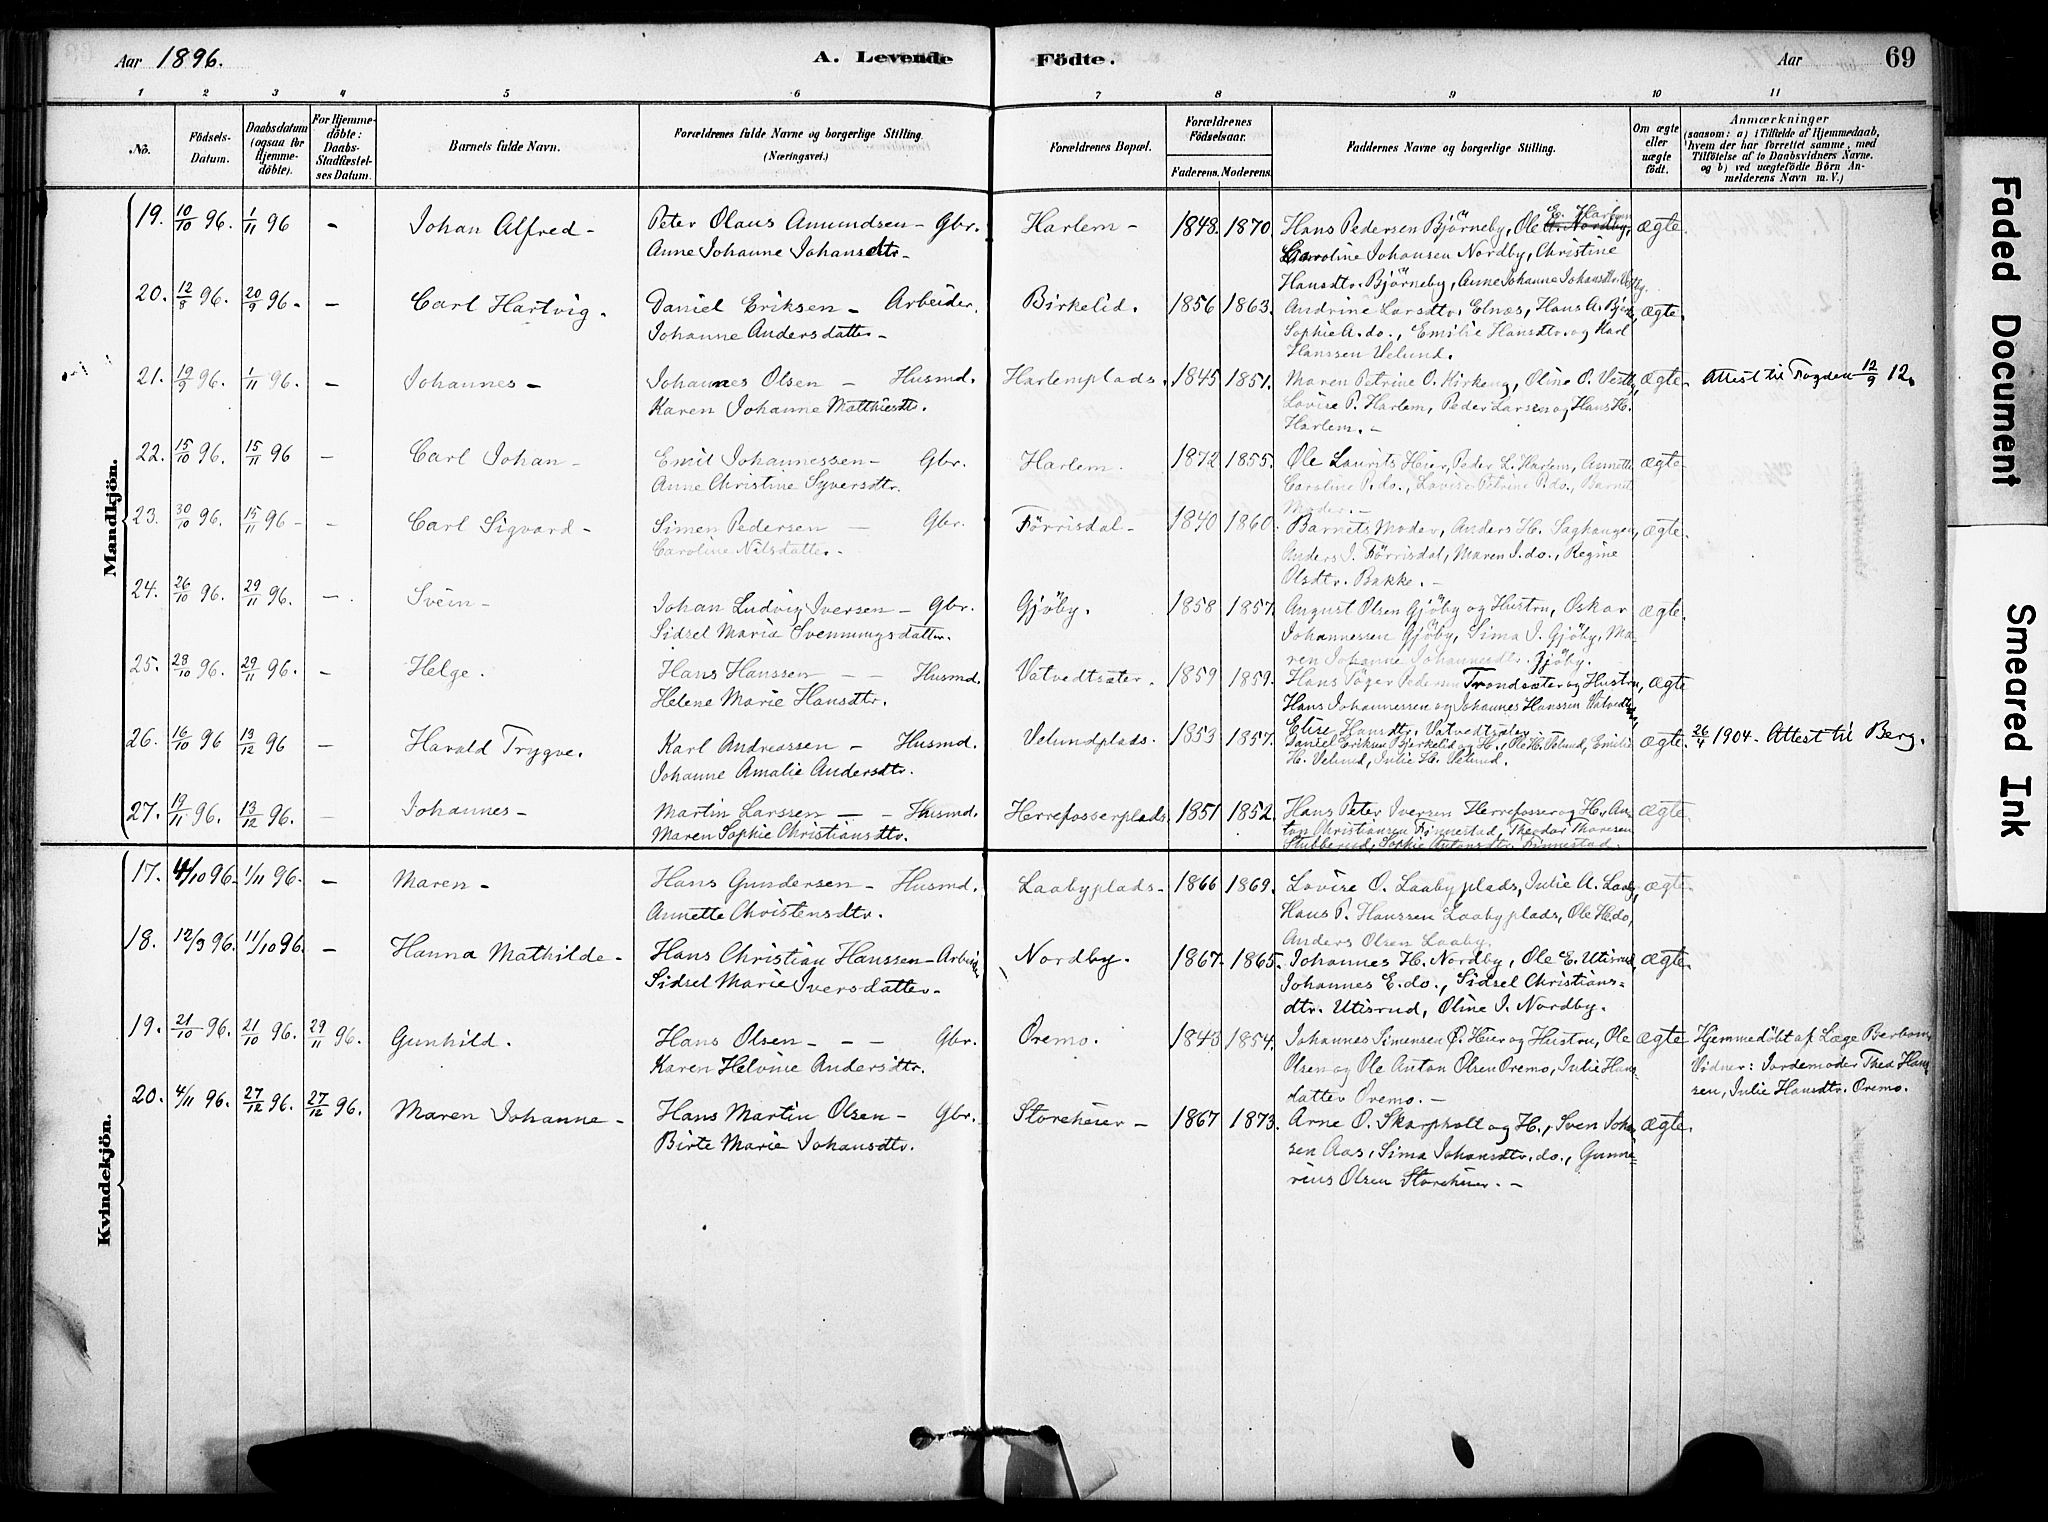 Aar 1896. A. Levende Födte. Aar 69
1 2 3 4 5 6 7 8 9 10 11
No.
Födsels-Datum.
Daabsdatum (ogsaa for Hjemmedöbte).
For Hjemmedöbte: Daabs-Stadfæstelses Datum.
Barnets fulde Navn.
Forældrenes fulde Navne og borgerlige Stilling.
(Næringsvei.)
Forældrenes Bopæl.
Forældrenes Födselsaar.
Faderens. Moderens.
Faddernes Navne og borgerlige Stilling.
Om ægte eller uægte födt.
Anmærkninger
(saasom: a) i Tilfælde af Hjemmedaab, hvem der har forrettet samme, med Tilföielse af to Daabsvidners Navne. og b) ved uægtefödte Börn Anmelderens Navn m. V.)
Mandkjön.
19. 10/10 96. 1/11 96 - Johan Alfred - Peter Olaus Amundsen - Gbr. Harlem - 1848. 1870. Hans Pedersen Bjørneby, Ole E. Harlem ægte.
Anne Johanne Johansdtr. Caroline Johansen Nordby, Christine
Hansdtr. Bjørneby, Anne Johanne Johansdtr.
20. 12/8 96. 20/9 96 - - Carl Hartvig. Daniel Eriksen - Arbeider. Birkelid. 1856 1863. Andrine Larsdtr. Elnæs, Hans A. ægte.
Johanne Andersdatter - Sophie A. do., Emilie Hansdtr. og Karl
Hanssen Velund.
21. 19/9 96. 1/11 96. - Johannes - Johannes Olsen - Husmd. Harlemplads. 1845 1851. Maren Petrine O. Kirkeng, Oline O. ægte. Attest til Fogden 12/9 12.
Karen Johanne Matthisdtr. Lovise P. Harlem, Peder Larsen og Hans H.
Harlem. -
22. 15/10 96. 15/11 96 - Carl Johan - Emil Johannessen - Gbr. Harlem. 1872 1855. Ole Laurits Heier, Peder L. Harlem, Annette ægte.
Anne Christine Syversdtr. Caroline P. do., Lovise Petrine P. do., Barnets
Moder. -
23. 30/10 96. 15/11 96 - - Carl Sigvard - Simen Pedersen - Gbr. Førrisdal - 1840 1860. Barnets Moder, Anders H. Saghaugen, ægte.
Caroline Nilsdatter - Anders I. Førrisdal, Maren I. do., Regine
Olsdtr. Bakke. -
24. 26/10 96. 29/11 96. - Svein - Johan Ludvig Iversen - Gbr. Gjøby. 1858 1857. August Olsen Gjøby og Hustru, Oskar ægte.
Sidsel Maria Svenningsdatter. Johannessen Gjøby, Sima I. Gjøby, Ma-
ren Johanne Johannesdtr. Gjøby.
25. 28/10 96. 29/11 96. - Helge. Hans Hanssen - - Husmd. Vatvedtsæter. 1859 1859. Hans Peder Pedersen Trondsæter og Hustru, ægte
Helene Marie Hansdtr. Hans Johannessen og Johannes Hanssen
Elise Hansdtr. Vatvedtsæter.
26. 16/10 96 13/12 96 - Harald Trygve. Karl Andreassen - Husmd. Velundplads. 1853 1857. Daniel Eriksen Bjerkelid og H., Ole H. Velund, Emilie ægte. 26/4 1904. Attest til Berg.
Johanne Amalie Andersdtr. H. Velund, Julie H. Velund.
27. 19/11 96. 13/12 96. - Johannes - Martin Larssen - - Husmd. Herrefosserplads. 1851 1852. Hans Peter Iversen Herrefosser og H., An- ægte.
Maren Sophie Christiansdtr. ton Christiansen Finnestad, Theodor Thoresen
Stubberud, Sophie Antonsdtr. Finnestad.
Kvindekjön.
17. 4/10 96. 1/11 96. - Maren - Hans Gundersen - Husmd. Laabyplads - 1866 1869. Lovise O. Laabyplads, Julie A. Laaby, ægte.
Annette Christensdtr. Hans P. Hanssen Laabyplads, Ole H. do,
Anders Olsen Laaby.
18. 12/3 96. 11/10 96. - Hanna Mathilde - Hans Christian Hanssen - Arbeider Nordby. 1867. 1865. Johannes H. Nordby, Ole E. Utisrud, ægte.
Sidsel Marie Iversdatter - Johannes E. do., Sidsel Christians-
dtr. Utisrud, Oline I. Nordby.
19. 21/10 96. 21/10 96. 29/11 96. Gunhild. Hans Olsen - - - Gbr. Oremo. 1843 1854. Johannes Simensen Ø. Heier og Hustru, Ole ægte Hjemmedöbt af Læge Berbom,
Karen Helvine Andersdtr. Olsen og Ole Anton Olsen Oremo, Julie Hans- Vidner: Jordemoder Thea Han-
datter Oremo. - sen, Julie Hansdtr. Oremo.
20. 4/11 96. 27/12 96. 27/12 96. Maren Johanne - Hans Martin Olsen - Gbr. Storeheier - 1867 1873. Arne O. Skarpholt og H., Sven Johan- ægte.
Birte Marie Johansdtr. sen Aas, Sima Johansdtr. do., Gunne-
rius Olsen Storeheier. -
Faded Document
Smeared Ink